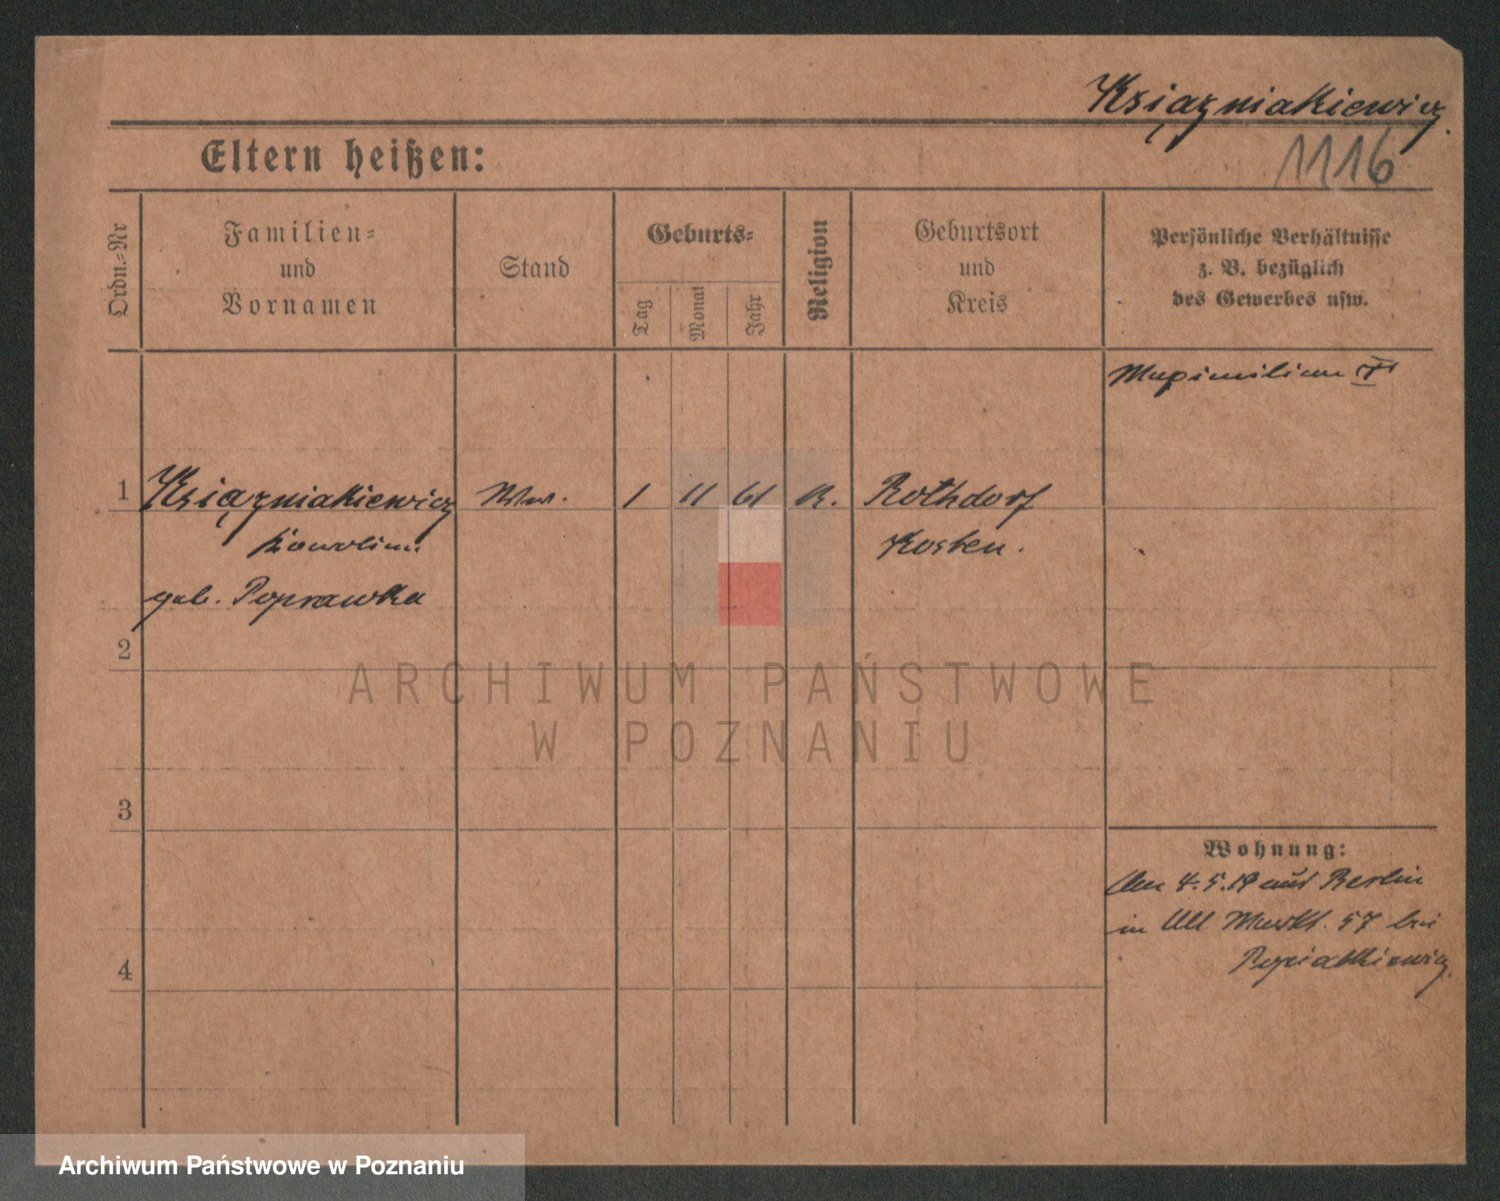 Książniakiewicz.
1116
Eltern heißen:
Ordn.-Nr
Familien-
und
Vornamen
Stand
Geburts-
Tag
Monat
Jahr
Religion
Geburtsort
und
Kreis
Persönliche Verhältnisse
z. B. bezüglich
des Gewerbes usw.
Maximilian
1 Książniakiewicz Ww. 1 11 61 K. Rothdorf
Kosten.
geb. Poprawka
2
3
4
Wohnung:
Am 4.5.19 aus Berlin
in Alt Markt. 57 bei
ARCHIWUM PAŃSTWOWE
W POZNANIU
Archiwum Państwowe w Poznaniu